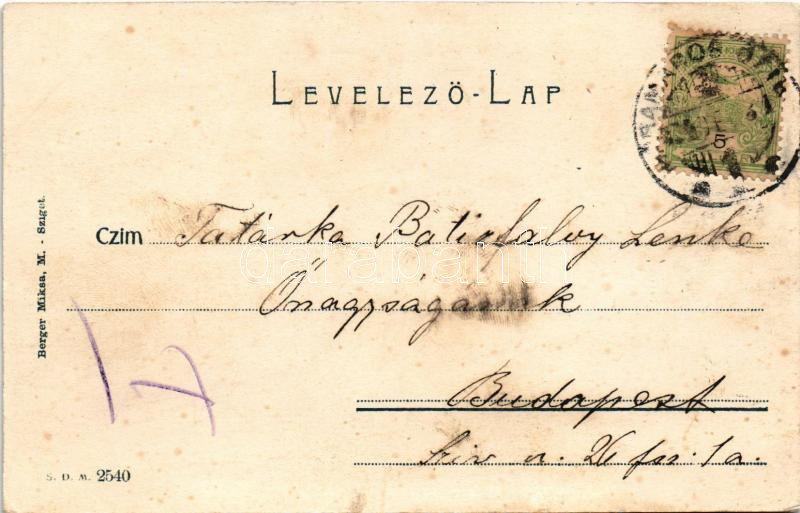 LEVELEZŐ-LAP
5
Czim Tatárka Batizfalvy Lenke
Őnagyságának
Budapest
Sziv u. 26 fsz. 1a.
Berger Miksa, M. - Sziget.
S. D. M. 2540
darabanth